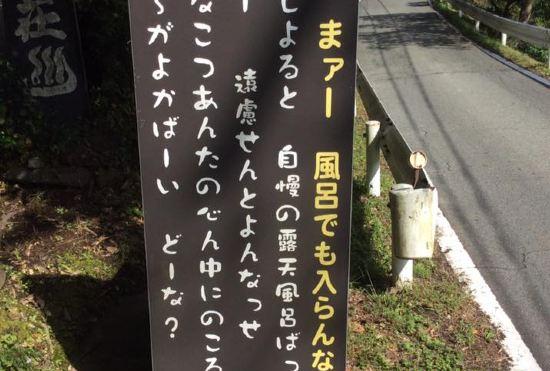 まァー 風呂でも入らんな
しよると 自慢の露天風呂ばつ
ー 遠慮せんとよんなっせ
なこつあんたの心ん中にのころ
〜がよかばーい どーな?
荘